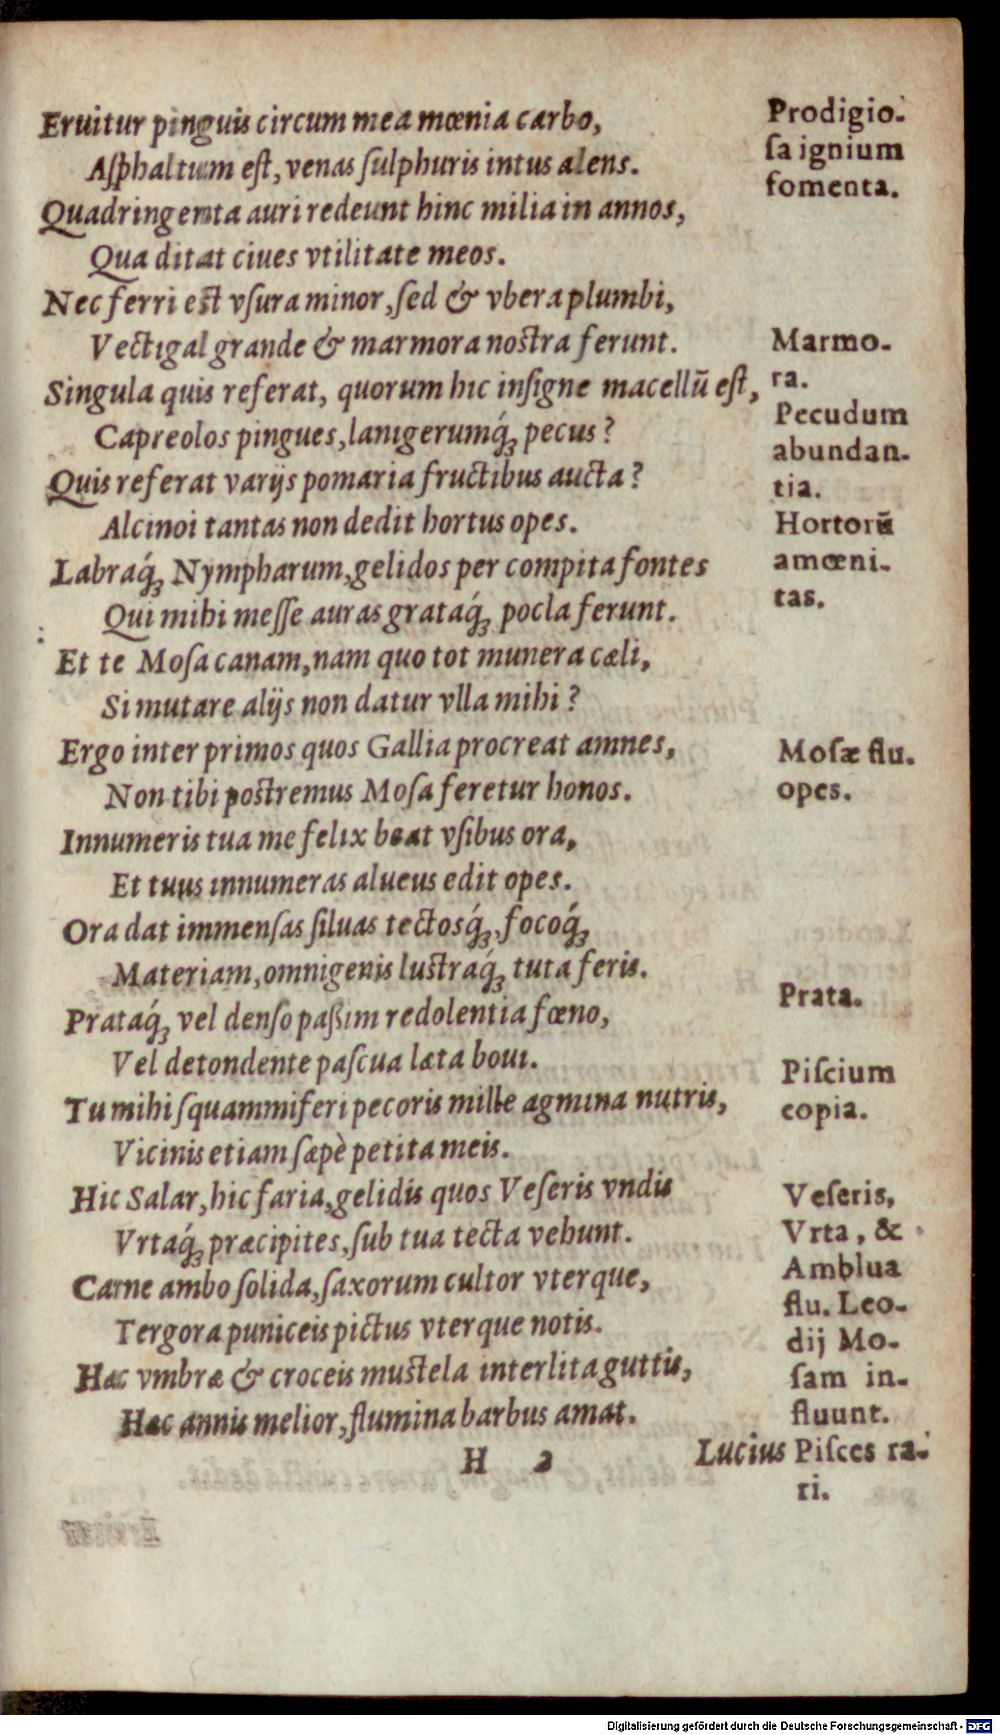 Eruitur pinguis circum mea mœnia carbo,
Aſphaltum eſt, venas ſulphuris intus alens.
Quadringenta auri redeunt hinc milia in annos,
Qua ditat ciues vtilitate meos.
Nec ferri eſt vſura minor, ſed & vbera plumbi,
Vectigal grande & marmora noſtra ferunt.
Singula quis referat, quorum hic inſigne macellũ eſt,
Capreolos pingues, lanigerumq́ꝫ pecus?
Quis referat varijs pomaria fructibus aucta?
Alcinoi tantas non dedit hortus opes.
Labraq́ꝫ Nympharum, gelidos per compita fontes
Qui mihi meſſe auras grataq́ꝫ pocla ferunt.
Et te Moſa canam, nam quo tot munera cæli,
Si mutare alijs non datur vlla mihi?
Ergo inter primos quos Gallia procreat amnes,
Non tibi poſtremus Moſa feretur honos.
Innumeris tua me felix beat vſibus ora,
Et tuus innumeras alueus edit opes.
Ora dat immenſas ſiluas tectosq́ꝫ, focoq́ꝫ
Materiam, omnigenis luſtraq́ꝫ tuta feris.
Prataq́ꝫ vel denſo paßim redolentia fœno,
Vel detondente paſcua læta boui.
Tu mihi ſquammiferi pecoris mille agmina nutris,
Vicinis etiam ſæpè petita meis.
Hic Salar, hic faria, gelidis quos Veſeris vndis
Vrtaq́ꝫ præcipites, ſub tua tecta vehunt.
Carne ambo ſolida, ſaxorum cultor vterque,
Tergora puniceis pictus vterque notis.
Hac vmbræ & croceis muſtela interlita guttis,
Hac annis melior, flumina barbus amat.
H 2
Lucius
Prodigio-
ſa ignium
fomenta.
Marmo-
ra.
Pecudum
abundan-
tia.
Hortorũ
amœni-
tas.
Moſæ flu.
opes.
Prata.
Piſcium
copia.
Veſeris,
Vrta, &
Amblua
flu. Leo-
dij Mo-
ſam in-
fluunt.
Piſces ra-
ri.
Digitalisierung gefördert durch die Deutsche Forschungsgemeinschaft - DFG